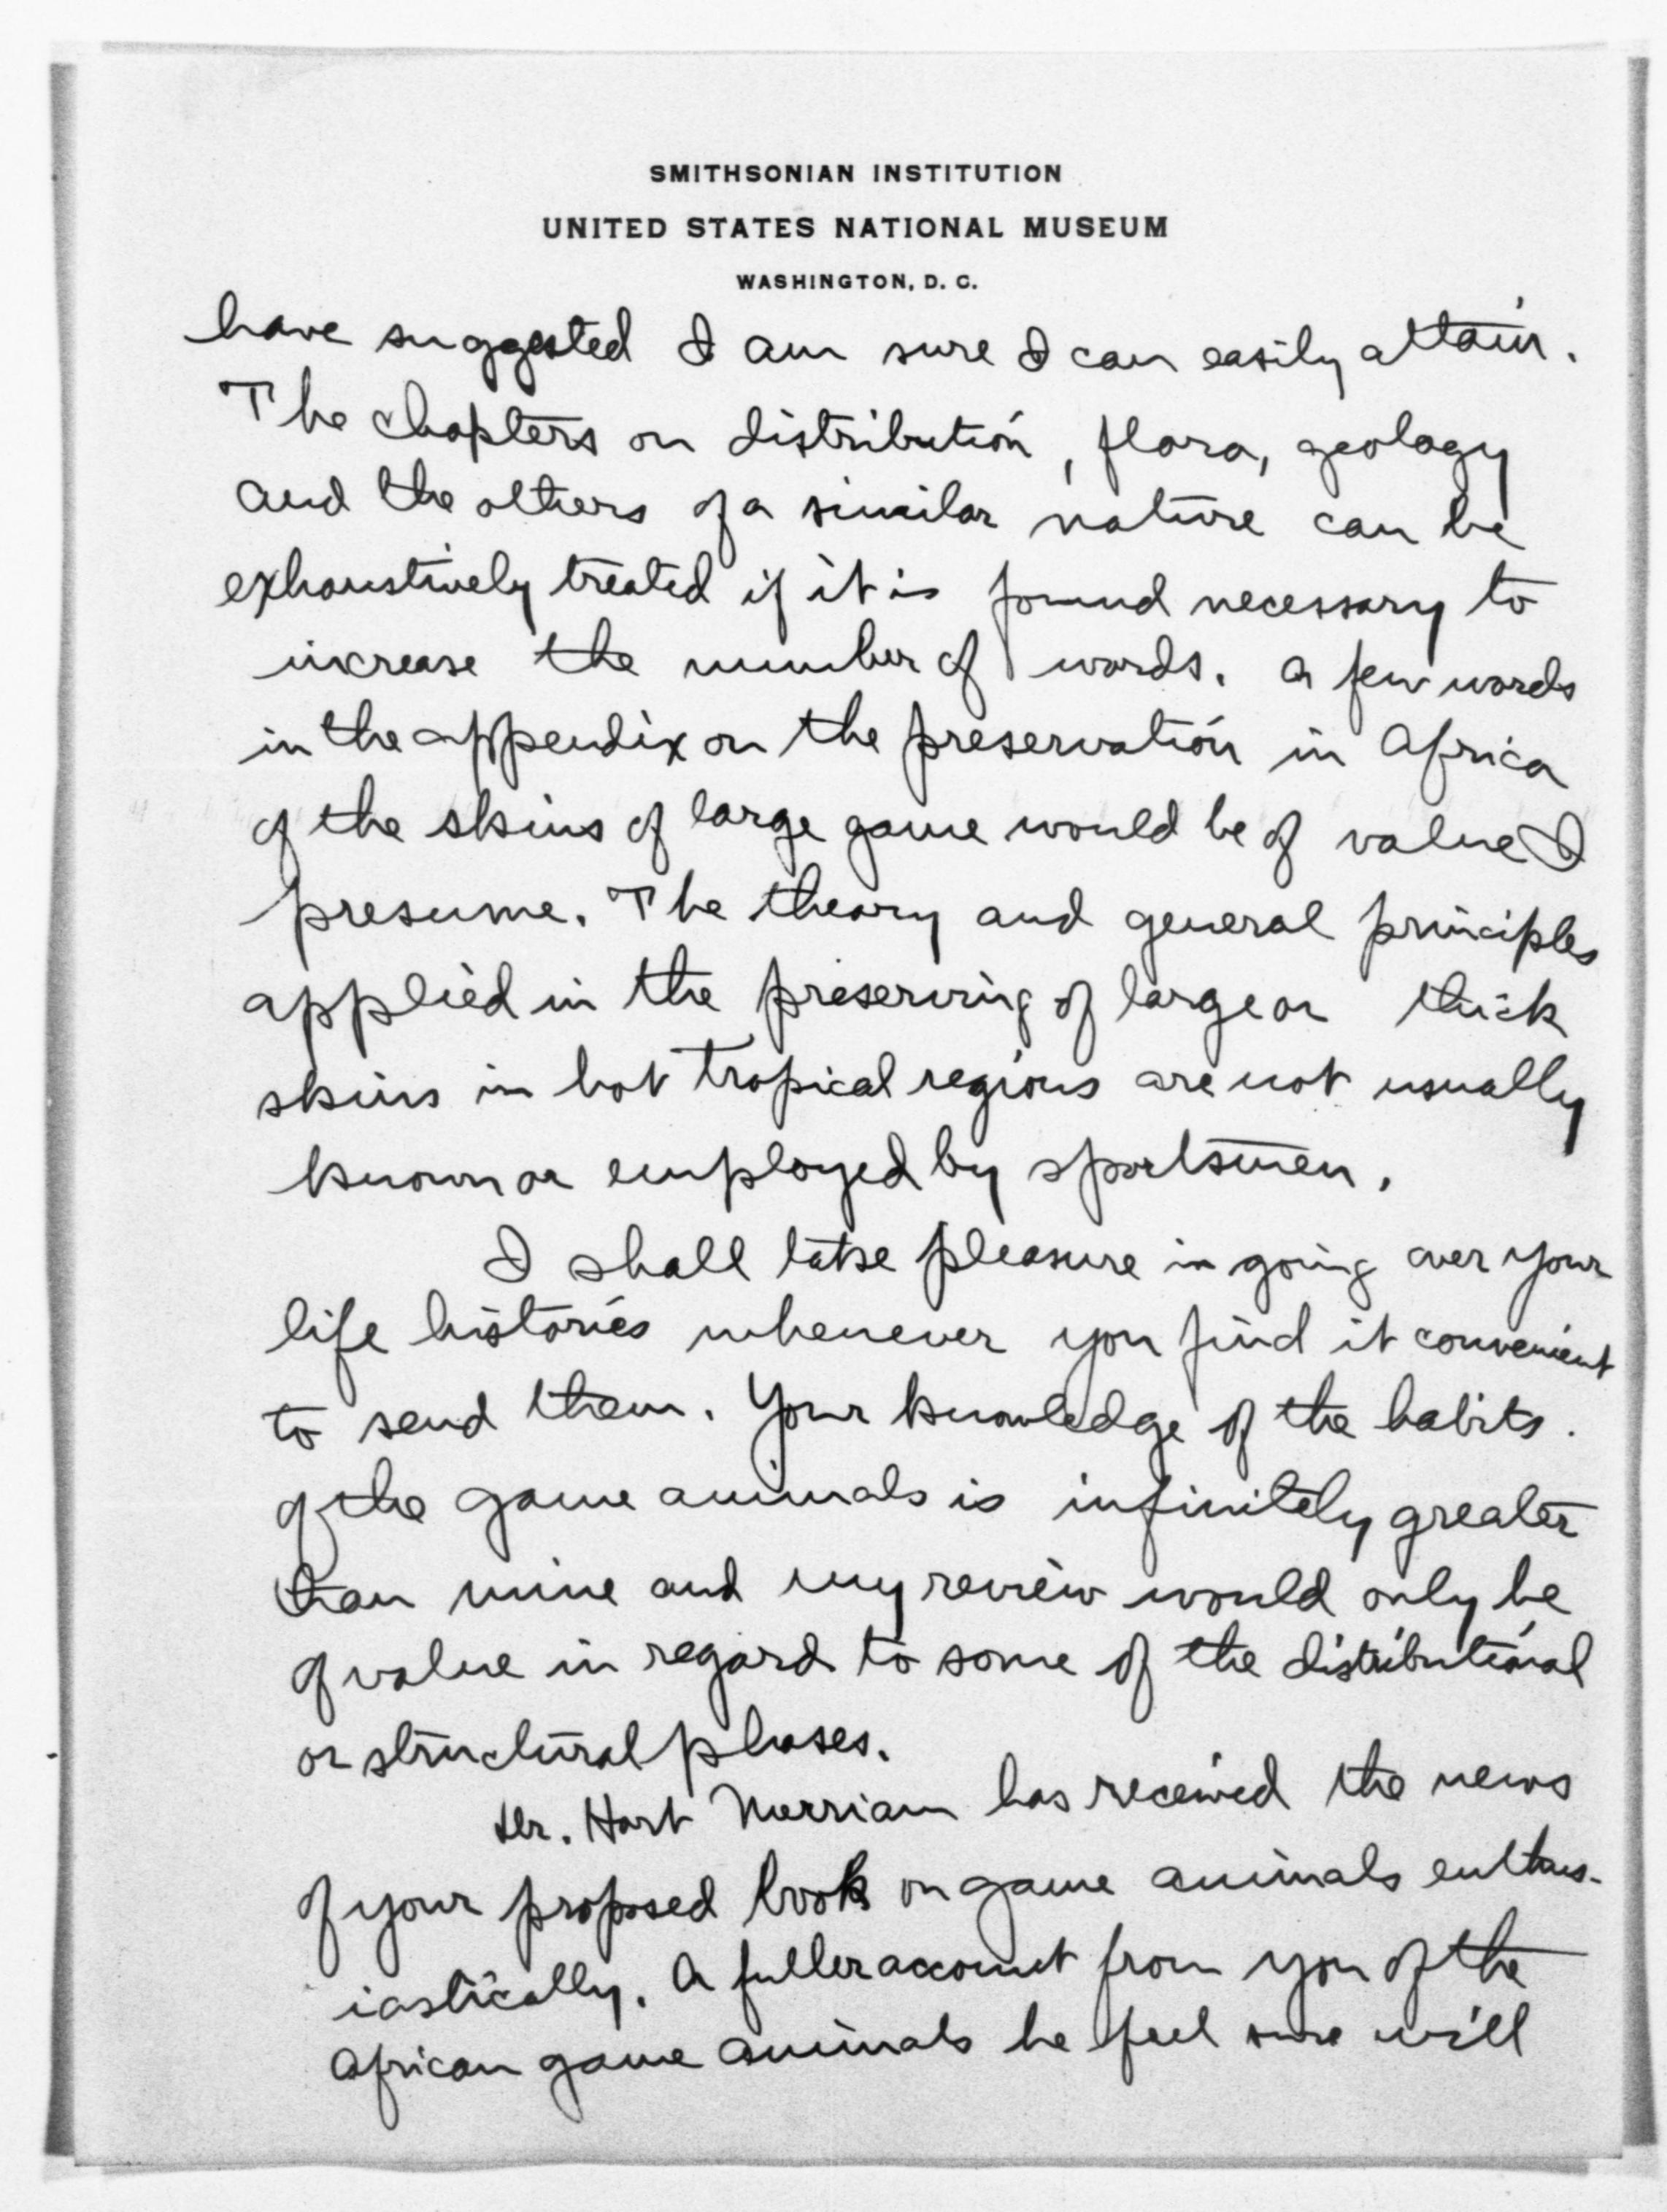 SMITHSONIAN INSTITUTION
UNITED STATES NATIONAL MUSEUM
WASHINGTON, D. C.
have suggested I am sure I can easily attain.
The chapters on distribution, flora, geology
and the others of a similar nature can be
exhaustively treated if it is found necessary to
increase the number of words. A few words
in the appendix on the preservation in Africa
of the skins of large game would be of value I
presume. The theory and general principles
applied in the preserving of large or thick
skins in hot tropical regions are not usually
known or employed by sportsmen.
I shall take pleasure in going over your
life histories whenever you find it convenient
to send them. Your knowledge of the habits
of the game animals is infinitely greater
than mine and my review would only be
of value in regard to some of the distributional
or structural phases.
Dr. Hart Merriam has received the news
of your proposed book on game animals enthus-
iastically. A fuller account from you of the
African game animals he feel sure will